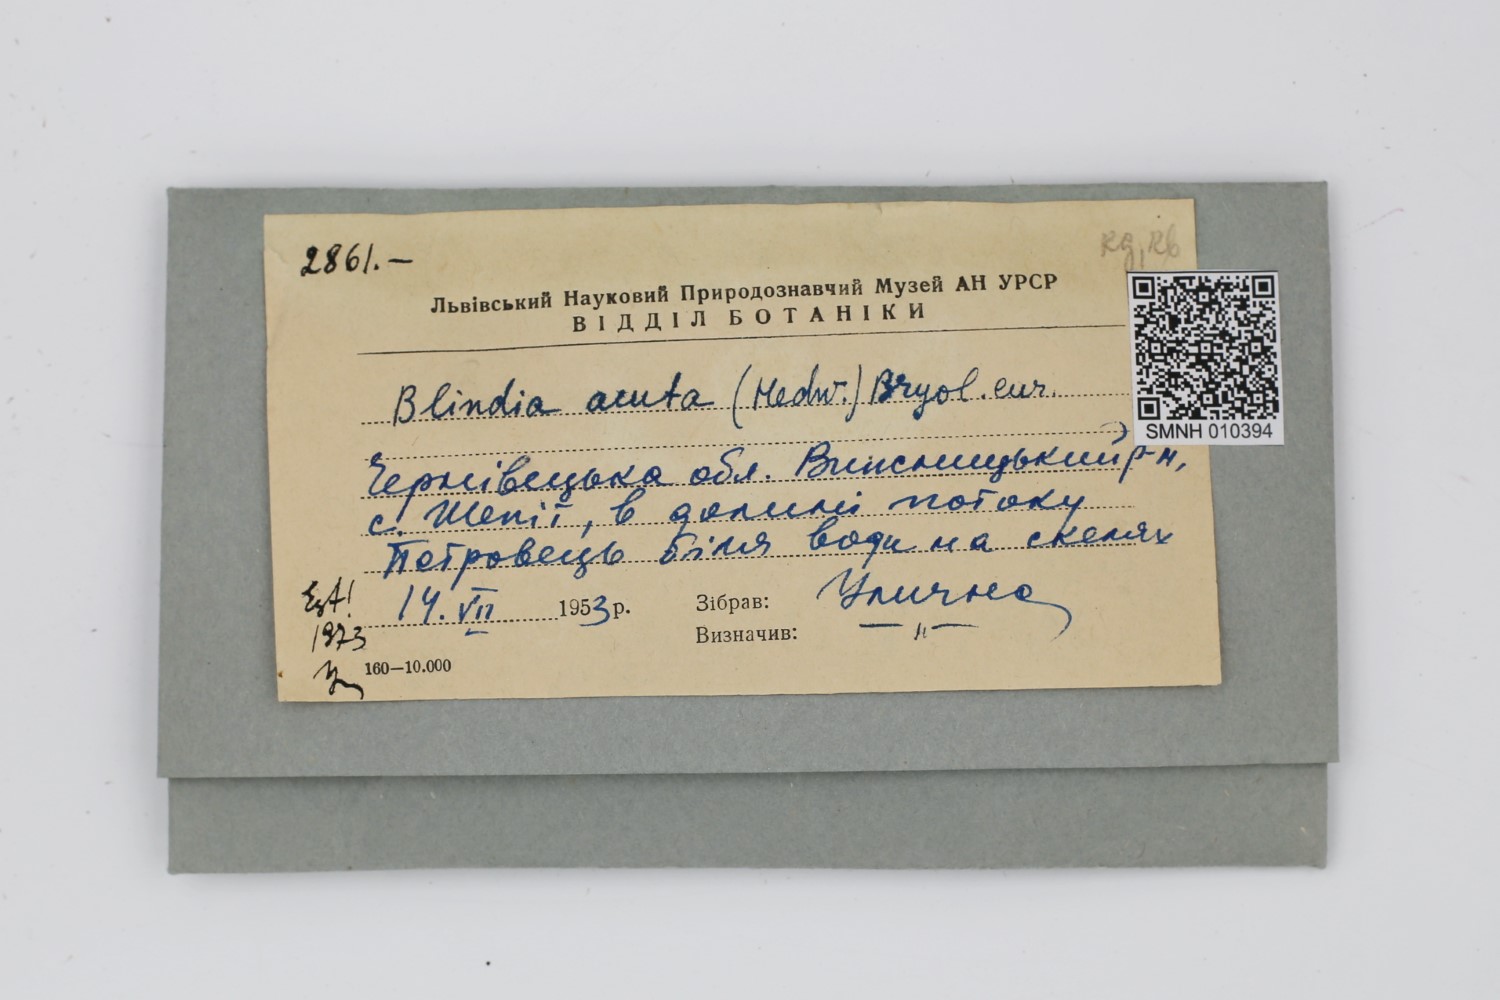 2861.—
Rg, Rb
Львівський Науковий Природознавчий Музей АН УРСР
ВІДДІЛ БОТАНІКИ
Blindia acuta (Hedw.) Bryol. eur.
SMNH 010394
Чернівецька обл. Вижницький р-н,
с. Шепіт, в долині потоку
Петровець біля води на скелях
14. VII 1953 р.
Зібрав: Улична
Визначив: — " —
1973
160—10.000